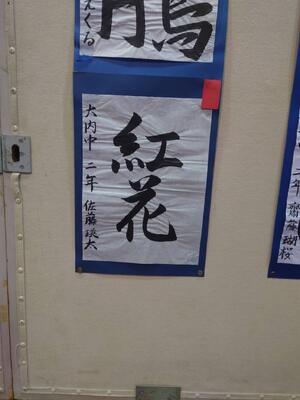 えくる
紅花
大内中 二年 佐藤
二年 齋藤瑚桜